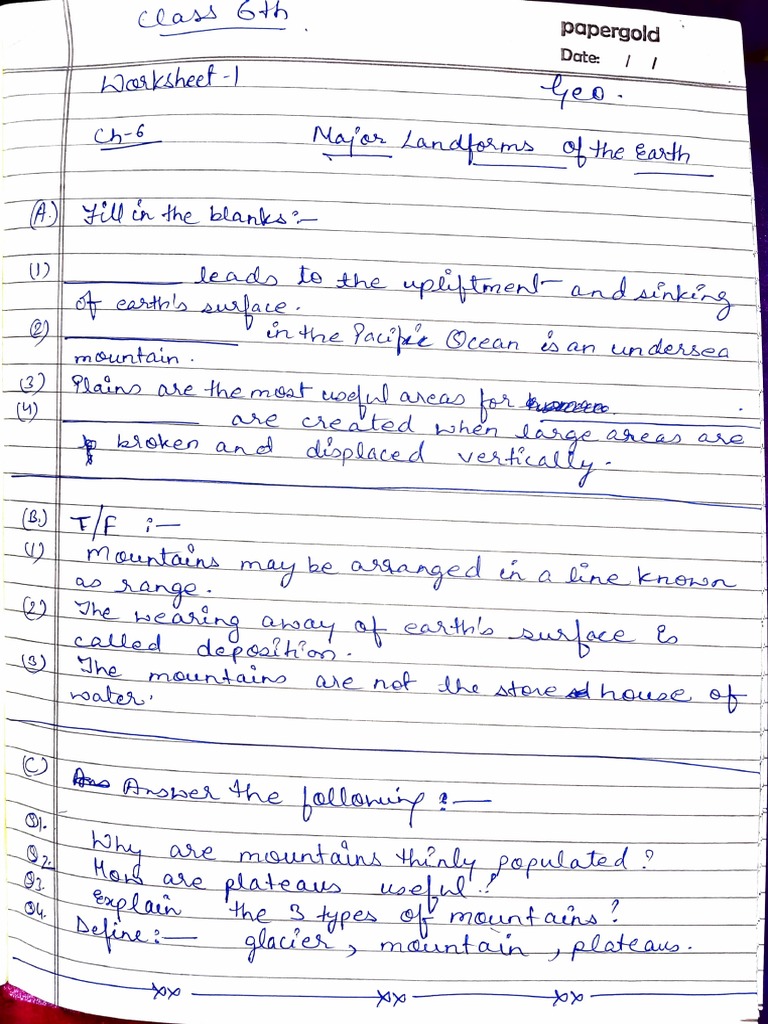 Class 6th
papergold
Date: / /
Worksheet-1 Geo.
Ch-6 Major Landforms of the Earth
(A.) Fill in the blanks:-
(1) __________ leads to the upliftment and sinking
of earth's surface.
(2) __________ in the Pacific Ocean is an undersea
mountain.
(3) Plains are the most useful areas for __________.
(4) __________ are created when large areas are
broken and displaced vertically.
(B.) T/F :-
(1) Mountains may be arranged in a line known
as range.
(2) The wearing away of earth's surface is
called deposition.
(3) The mountains are not the store house of
water.
(C) Answer the following :-
Q1. Why are mountains thinly populated?
Q2. How are plateaus useful?
Q3. Explain the 3 types of mountains?
Q4. Define:- glacier, mountain, plateaus.
xx xx xx